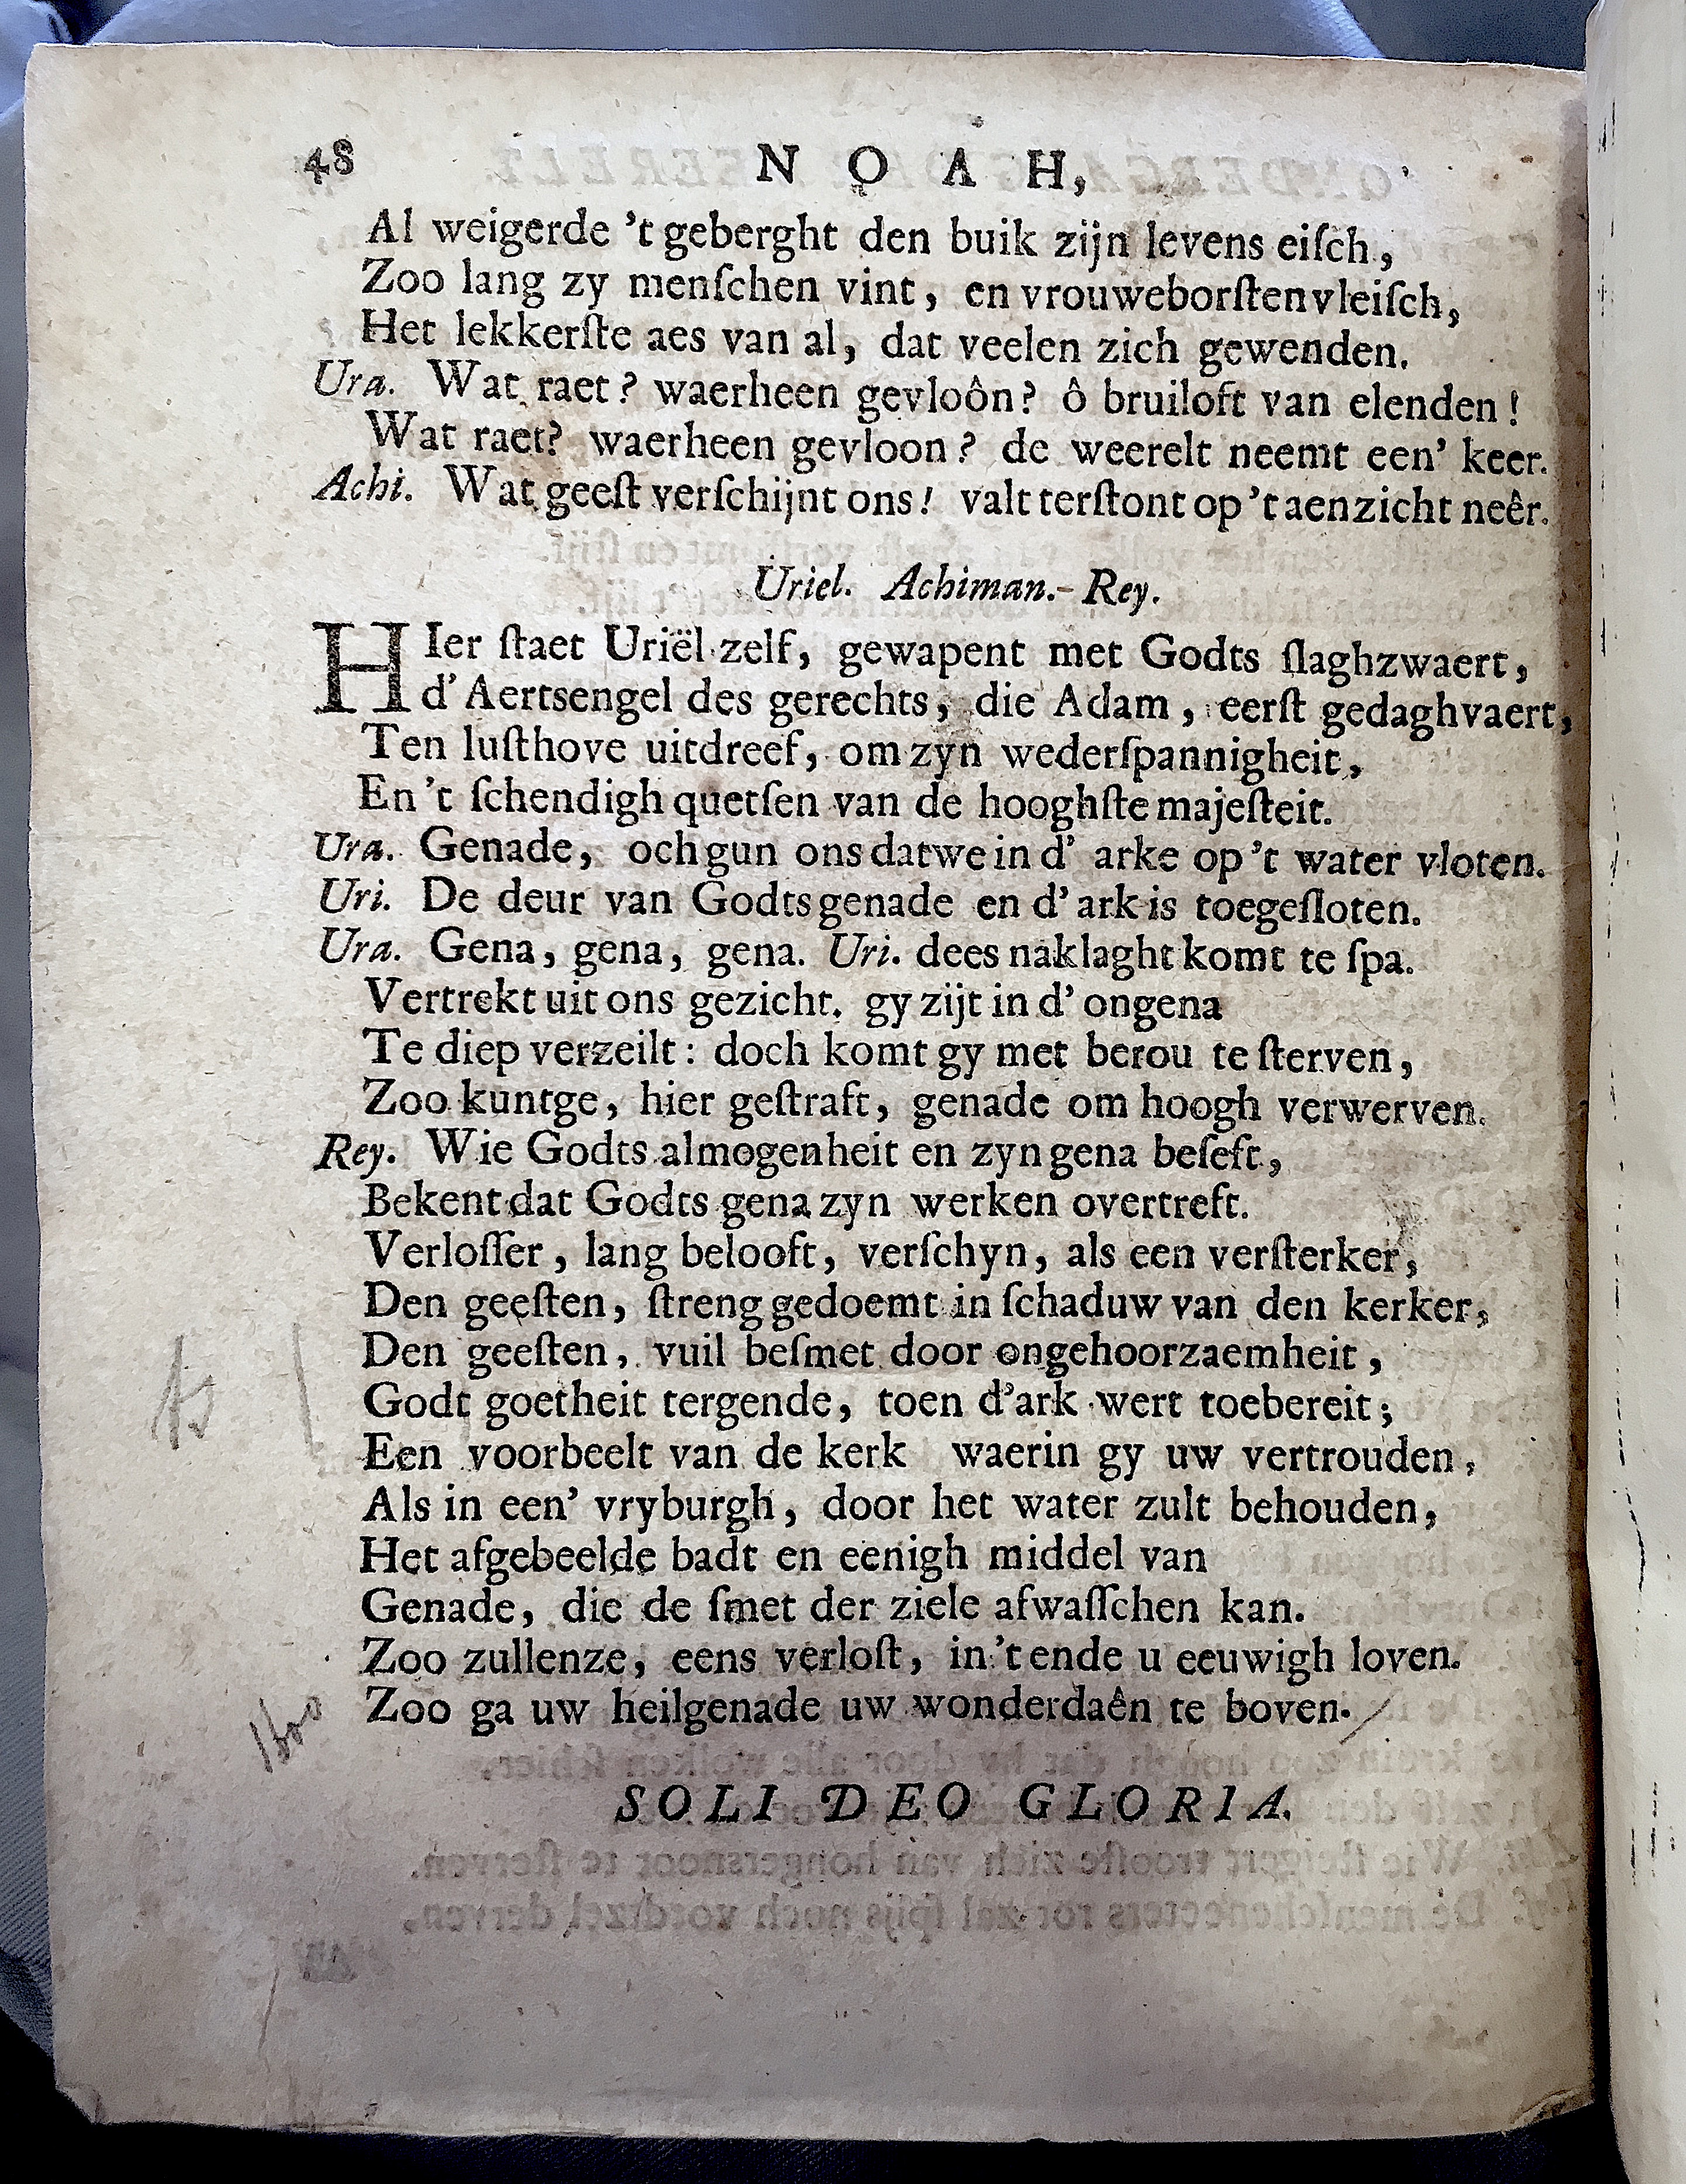 48 NOAH,
Al weigerde 't geberght den buik zijn levens eiſch,
Zoo lang zy menſchen vint, en vrouweborſtenvleiſch,
Het lekkerſte aes van al, dat veelen zich gewenden.
Ura. Wat raet? waerheen gevloôn? ô bruiloft van elenden!
Wat raet? waerheen gevloon? de weerelt neemt een' keer.
Achi. Wat geeſt verſchijnt ons! valt terſtont op 't aenzicht neêr.
Uriel. Achiman.- Rey.
HIer ſtaet Uriël zelf, gewapent met Godts ſlaghzwaert,
d'Aertsengel des gerechts, die Adam, eerſt gedaghvaert,
Ten luſthove uitdreef, om zyn wederſpannigheit,
En 't ſchendigh quetſen van de hooghſte majeſteit.
Ura. Genade, och gun ons dat we in d' arke op 't water vloten.
Uri. De deur van Godts genade en d' ark is toegeſloten.
Ura. Gena, gena, gena. Uri. dees naklaght komt te ſpa.
Vertrekt uit ons gezicht. gy zijt in d' ongena
Te diep verzeilt: doch komt gy met berou te ſterven,
Zoo kuntge, hier geſtraft, genade om hoogh verwerven.
Rey. Wie Godts almogenheit en zyn gena beſeft,
Bekent dat Godts gena zyn werken overtreft.
Verloſſer, lang belooft, verſchyn, als een verſterker,
Den geeſten, ſtreng gedoemt in ſchaduw van den kerker,
Den geeſten, vuil beſmet door ongehoorzaemheit,
Godt goetheit tergende, toen d'ark wert toebereit;
Een voorbeelt van de kerk waerin gy uw vertrouden,
Als in een' vryburgh, door het water zult behouden,
Het afgebeelde badt en eenigh middel van
Genade, die de ſmet der ziele afwaſſchen kan.
Zoo zullenze, eens verloſt, in 't ende u eeuwigh loven.
Zoo ga uw heilgenade uw wonderdaên te boven.
SOLI DEO GLORIA.